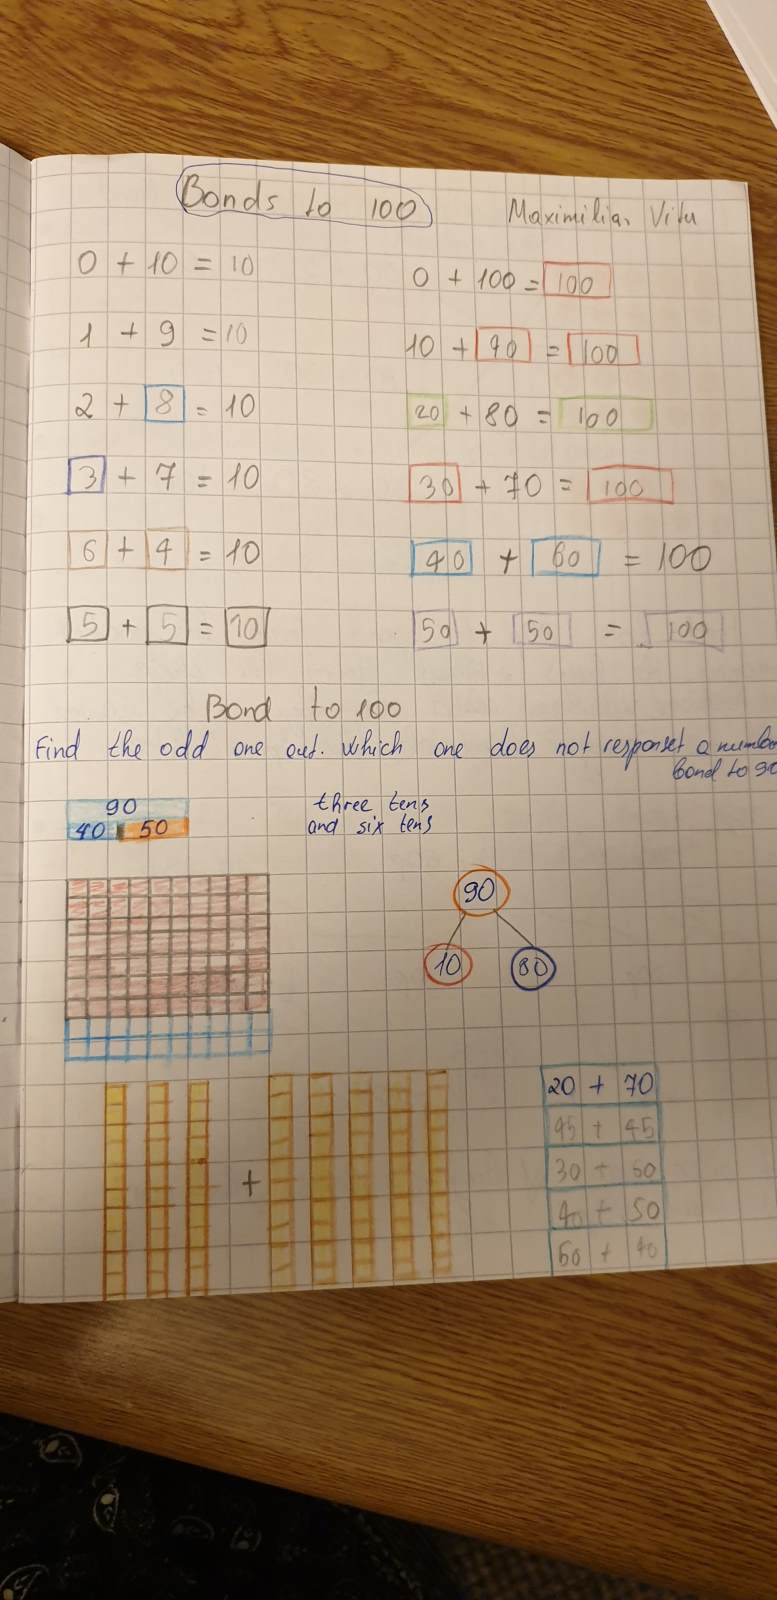 Bonds to 100
Maximilian Vitu
0 + 10 = 10
0 + 100 = 100
1 + 9 = 10
10 + 90 = 100
2 + 8 = 10
20 + 80 = 100
3 + 7 = 10
30 + 70 = 100
6 + 4 = 10
40 + 60 = 100
5 + 5 = 10
50 + 50 = 100
Bond to 100
Find the odd one out. Which one does not
bond to 90
90
40 50
three tens
and six tens
90
10 80
+
20 + 70
45 + 45
30 + 60
40 + 50
50 + 40